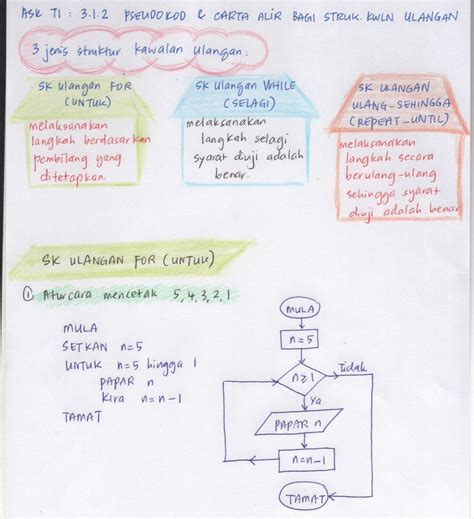 ASK T1 : 3.1.2 PSEUDOKOD & CARTA ALIR BAGI STRUK. KWLN ULANGAN
3 jenis struktur kawalan ulangan:
SK ulangan FOR
(UNTUK)
melaksanakan
langkah berdasarkan
pembilang yang
ditetapkan.
SK Ulangan WHILE
(SELAGI)
melaksanakan
langkah selagi
syarat diuji adalah
benar.
SK ULANGAN
ULANG-SEHINGGA
(REPEAT-UNTIL)
melaksanakan
langkah secara
berulang-ulang
sehingga syarat
diuji adalah benar
SK ULANGAN FOR (UNTUK)
① Aturcara mencetak 5,4,3,2,1
MULA
SETKAN n=5
UNTUK n=5 hingga 1
PAPAR n
Kira n=n-1
TAMAT
MULA
n=5
n≥1
Tidak
Ya
PAPAR n
n=n-1
TAMAT